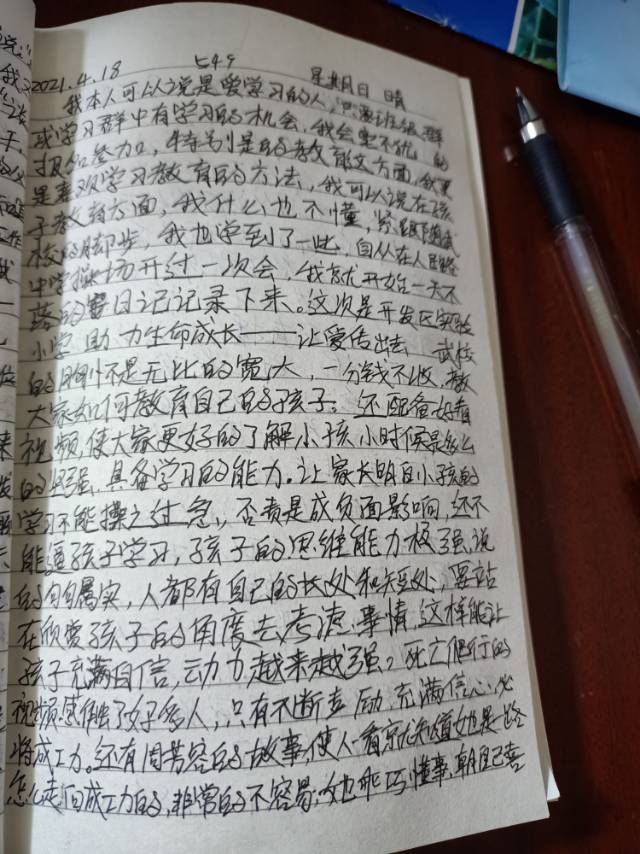 2021.4.18 七49 星期日 晴
我本人可以说是爱学习的人,只要班级群
或学习群中有学习的机会,我会毫不犹 的
报名参加,特别是的教育文方面,我更
是喜欢学习教育的方法,我可以说在孩
子教育方面,我什么也不懂,紧跟武
校的脚步,我也学到了一些,自从在人民路
中学操场开过一次会,我就开始一天不
落的日记记录下来。这次是开发区实验
小学 助力生命成长——让爱传出去 武校
的胸怀是无比的宽大,一分钱不收,教
大家如何教育自己的孩子,还配备好看
视频,使大家更好的了解小孩,小时候是多么
的坚强,具备学习的能力。让家长明白小孩的
学习不能操之过急,否责是成负面影响,还不
能逼孩子学习,孩子的思维能力极强,说
的句句属实,人都有自己的长处和短处,要站
在欣爱孩子的角度去考虑事情,这样能让
孩子充满自信,动力越来越强,死亡爬行的
视频感触了好多人,只有不断去励,充满信心,必
将成功。还有周芳容的故事,使人一看就知道她是一路
怎么走向成功的,非常的不容易,她乖巧懂事,朝自己喜